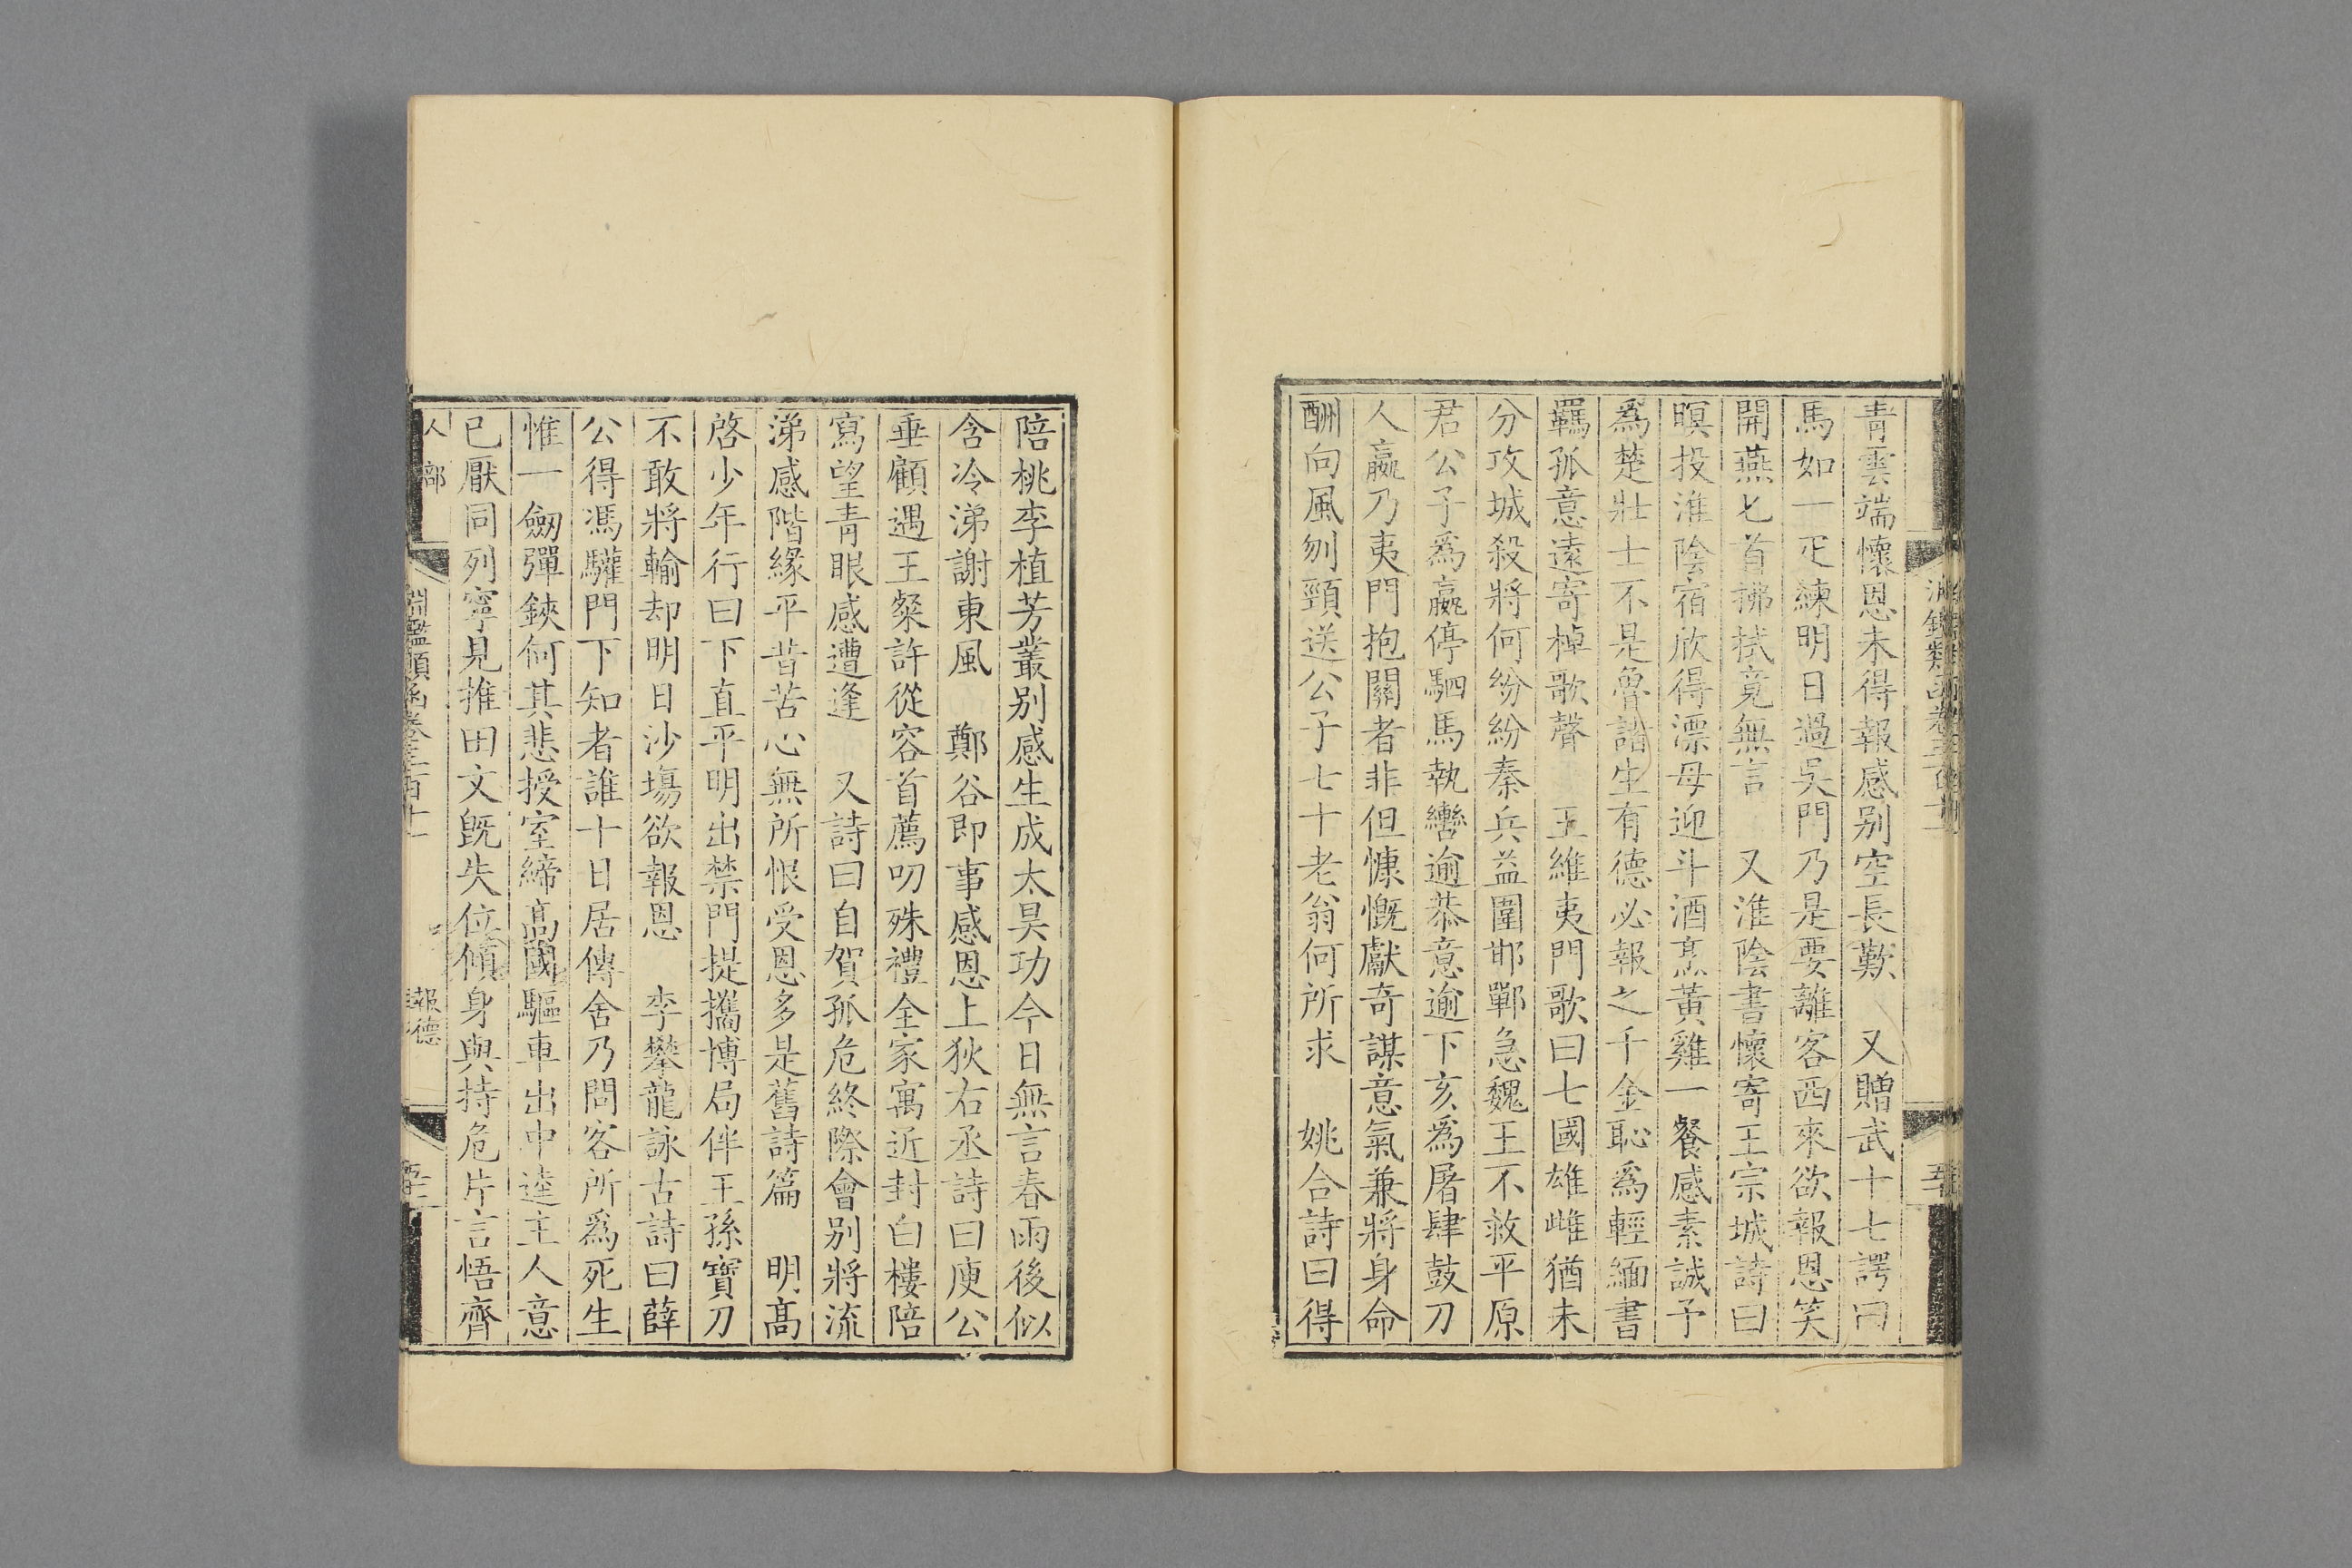 青雲端懷恩未得報感別空長歎　又贈武十七諤曰
馬如一疋練明日過吳門乃是要離客西來欲報恩笑
開燕匕首拂拭竟無言　又淮陰書懷寄王宗城詩曰
暝投淮陰宿欣得漂母迎斗酒烹黃雞一餐感素誠予
爲楚壯士不是魯諸生有德必報之千金恥爲輕緬書
羈孤意遠寄棹歌聲　王維夷門歌曰七國雄雌猶未
分攻城殺將何紛紛秦兵益圍邯鄲急魏王不救平原
君公子爲嬴停駟馬執轡逾恭意逾下亥爲屠肆鼓刀
人嬴乃夷門抱關者非但慷慨獻奇謀意氣兼將身命
酬向風刎頸送公子七十老翁何所求　姚合詩曰得
陪桃李植芳叢別感生成太昊功今日無言春雨後似
含冷涕謝東風　鄭谷即事感恩上狄右丞詩曰庾公
垂顧遇王粲許從容首薦叨殊禮全家寓近封白樓陪
寫望青眼感遭逢　又詩曰自賀孤危終際會別將流
涕感階緣平昔苦心無所恨受恩多是舊詩篇　明高
啓少年行曰下直平明出禁門提攜博局伴王孫寶刀
不敢將輸却明日沙塲欲報恩　李攀龍詠古詩曰薛
公得馮驩門下知者誰十日居傳舍乃問客所爲死生
惟一劒彈鋏何其悲授室締高國驅車出中逵主人意
已厭同列寧見推田文旣失位傾身與持危片言悟齊
人部　淵鑑類函卷三百十一　報德